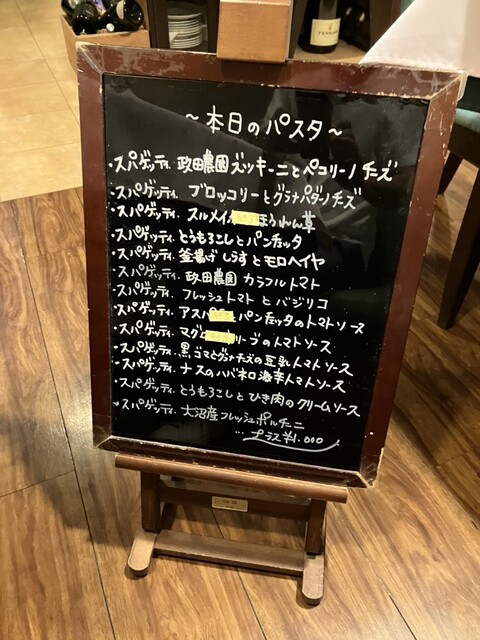 ～本日のパスタ～
・スパゲッティ 政田農園ズッキーニとペコリーノチーズ
・スパゲッティ ブロッコリーとグラナパダーノチーズ
・スパゲッティ スルメイ ほうれん草
・スパゲッティ とうもろこしとパンチェッタ
・スパゲッティ 釜揚げしらすとモロヘイヤ
・スパゲッティ 政田農園 カラフルトマト
・スパゲッティ フレッシュトマトとバジリコ
・スパゲッティ アスパ パンチェッタのトマトソース
・スパゲッティ マグロ リーブのトマトソース
・スパゲッティ 黒ゴマとグラナチーズの豆乳トマトソース
・スパゲッティ ナスのハバネロ海辛トマトソース
・スパゲッティ とうもろこしとひき肉のクリームソース
・スパゲッティ 大沼産フレッシュポルチーニ
…プラス¥1.000